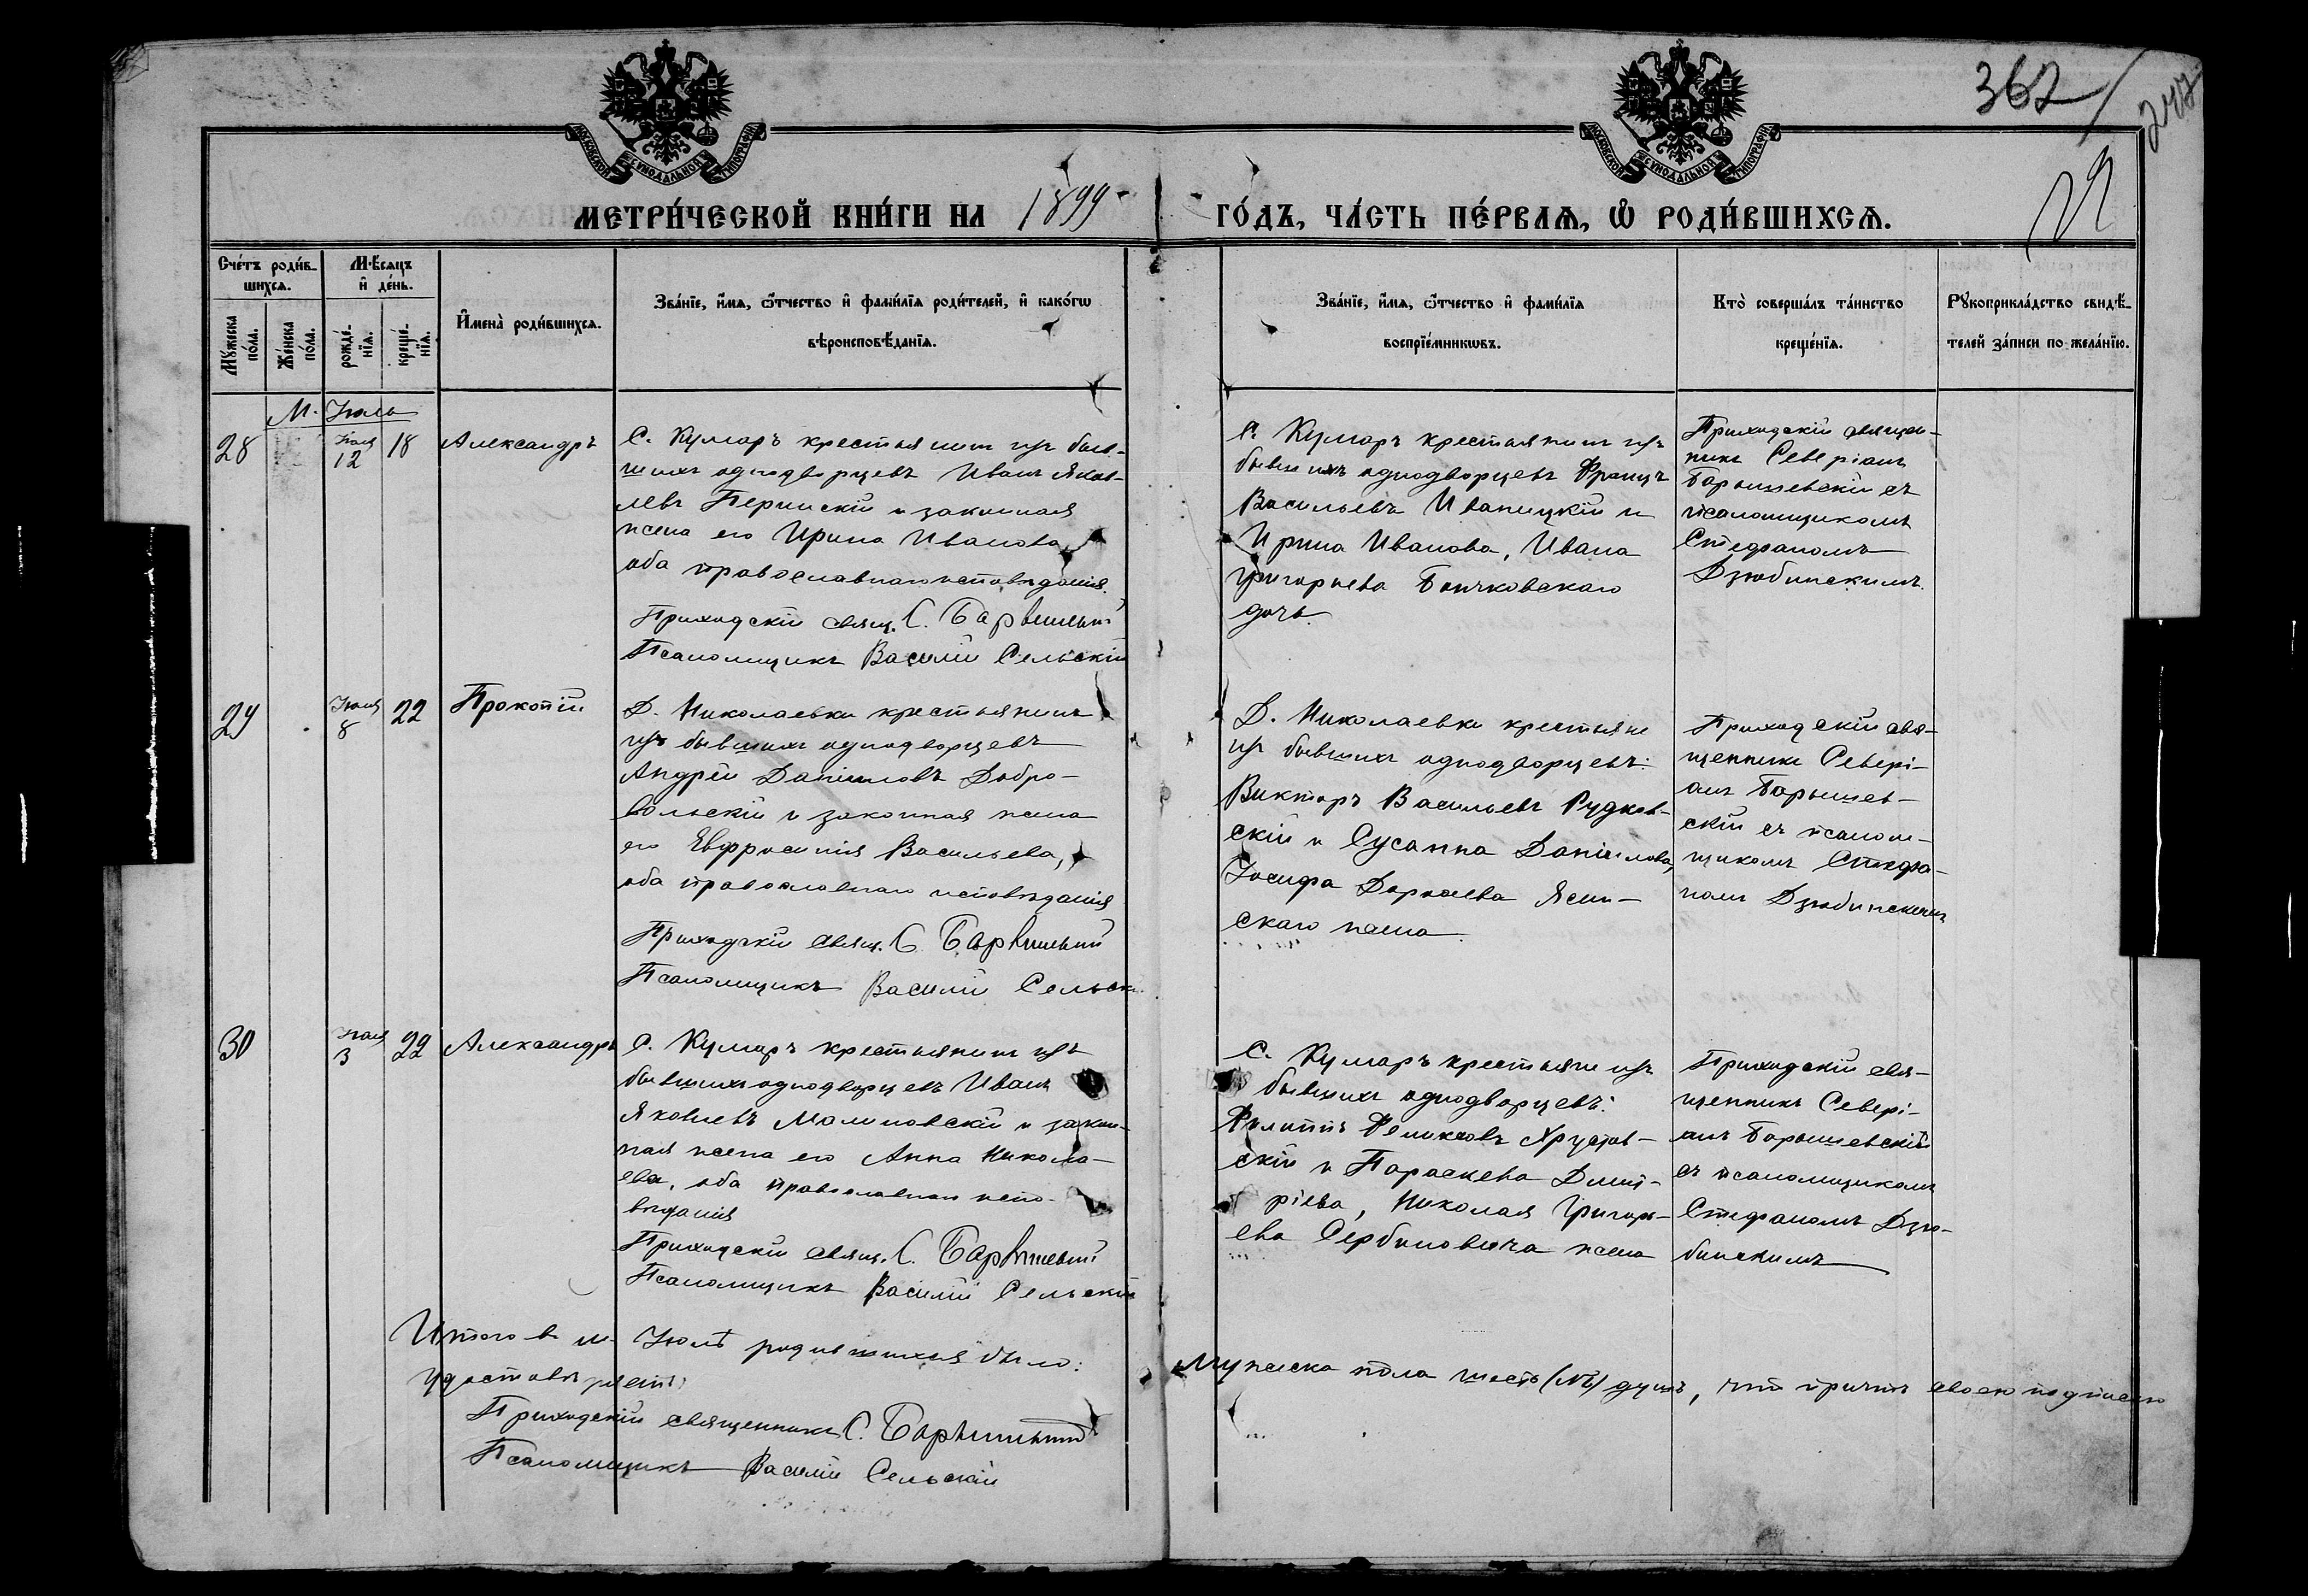 362
247
МОСКОВСКОЙ СУНОДАЛЬНОЙ ТИПОГРАФІИ
МОСКОВСКОЙ СУНОДАЛЬНОЙ ТИПОГРАФІИ
МЕТРИ́ЧЕСКОЙ КНИ́ГИ НА 1899 ГО́ДЪ, ЧА́СТЬ ПЕ́РВАѦ, Ѡ РОДИ́ВШИХСѦ.
Сче́тъ роди́в-
шихсѧ.
Мꙋ́жеска по́ла.
Же́нска по́ла.
Мѣ́сѧцъ
и҆ де́нь.
рожде́-
нїѧ.
креще́-
нїѧ.
И҆мена̀ роди́вшихсѧ.
Зва́нїе, и҆́мѧ, ѻ҆́тчество и҆ фами́лїѧ роди́телей, и҆ како́гѡ
вѣроисповѣ́данїѧ.
Зва́нїе, и҆́мѧ, ѻ҆́тчество и҆ фами́лїѧ
воспрїе́мникѡвъ.
Кто̀ соверша́лъ та́инство
креще́нїѧ.
Рꙋкоприкла́дство свидѣ́-
телей за́писи по жела́нїю.
М. Іюль
28
Іюля
12
18
Александръ
С. Кумаръ крестьянинъ изъ быв-
шихъ однодворцевъ Иванъ Яков-
левъ Перинскій и законная
жена его Ирина Иванова,
оба православнаго исповѣданія.
Приходскій свящ. С. Барышевскій
Псаломщикъ Василій Сельскій
С. Кумаръ крестьянинъ изъ
бывшихъ однодворцевъ Францъ
Васильевъ Иваницкій и
Ирина Иванова, Ивана
Григорьева Бончковскаго
дочь.
Приходскій священ-
никъ Северіанъ
Барышевскій съ
псаломщикомъ
Стефаномъ
Дзюбинскимъ.
29
Іюля
8
22
Прокопій
Д. Николаевки крестьянинъ
изъ бывшихъ однодворцевъ
Андрей Даніиловъ Добро-
вольскій и законная жена
его Евфросинія Васильева,
оба православнаго исповѣданія
Приходскій свящ. С. Барышевскій
Псаломщикъ Василій Сельск.
Д. Николаевки крестьяне
изъ бывшихъ однодворцевъ:
Викторъ Васильевъ Рудков-
скій и Сусанна Даніилова,
Іосифа Ясин-
скаго жена
Приходскій свя-
щенникъ Севері-
анъ Барышев-
скій съ псалом-
щикомъ Стефа-
номъ Дзюбинскимъ
30
Іюля
3
22
Александръ
С. Кумаръ крестьянинъ изъ
бывшихъ однодворцевъ Иванъ
Яковлевъ Малиновскій и закон-
ная жена его Анна Никола-
ева, оба православнаго испо-
вѣданія
Приходскій свящ. С. Барышевскій
Псаломщикъ Василій Сельскій
С. Кумаръ крестьяне изъ
бывшихъ однодворцевъ:
Филиппъ Феликсовъ Хрустов-
скій и Параскева Димит-
ріева, Николая Григорь-
ева Сербиновича жена
Приходскій свя-
щенникъ Севері-
анъ Барышевскій
съ псаломщикомъ
Стефаномъ Дзю-
бинскимъ
Итого въ м. Іюлѣ родившихся было: Мужеска пола шесть душъ, что причтъ своею подписью
удостовѣряетъ:
Приходскій священникъ С. Барышевскій
Псаломщикъ Василій Сельскій